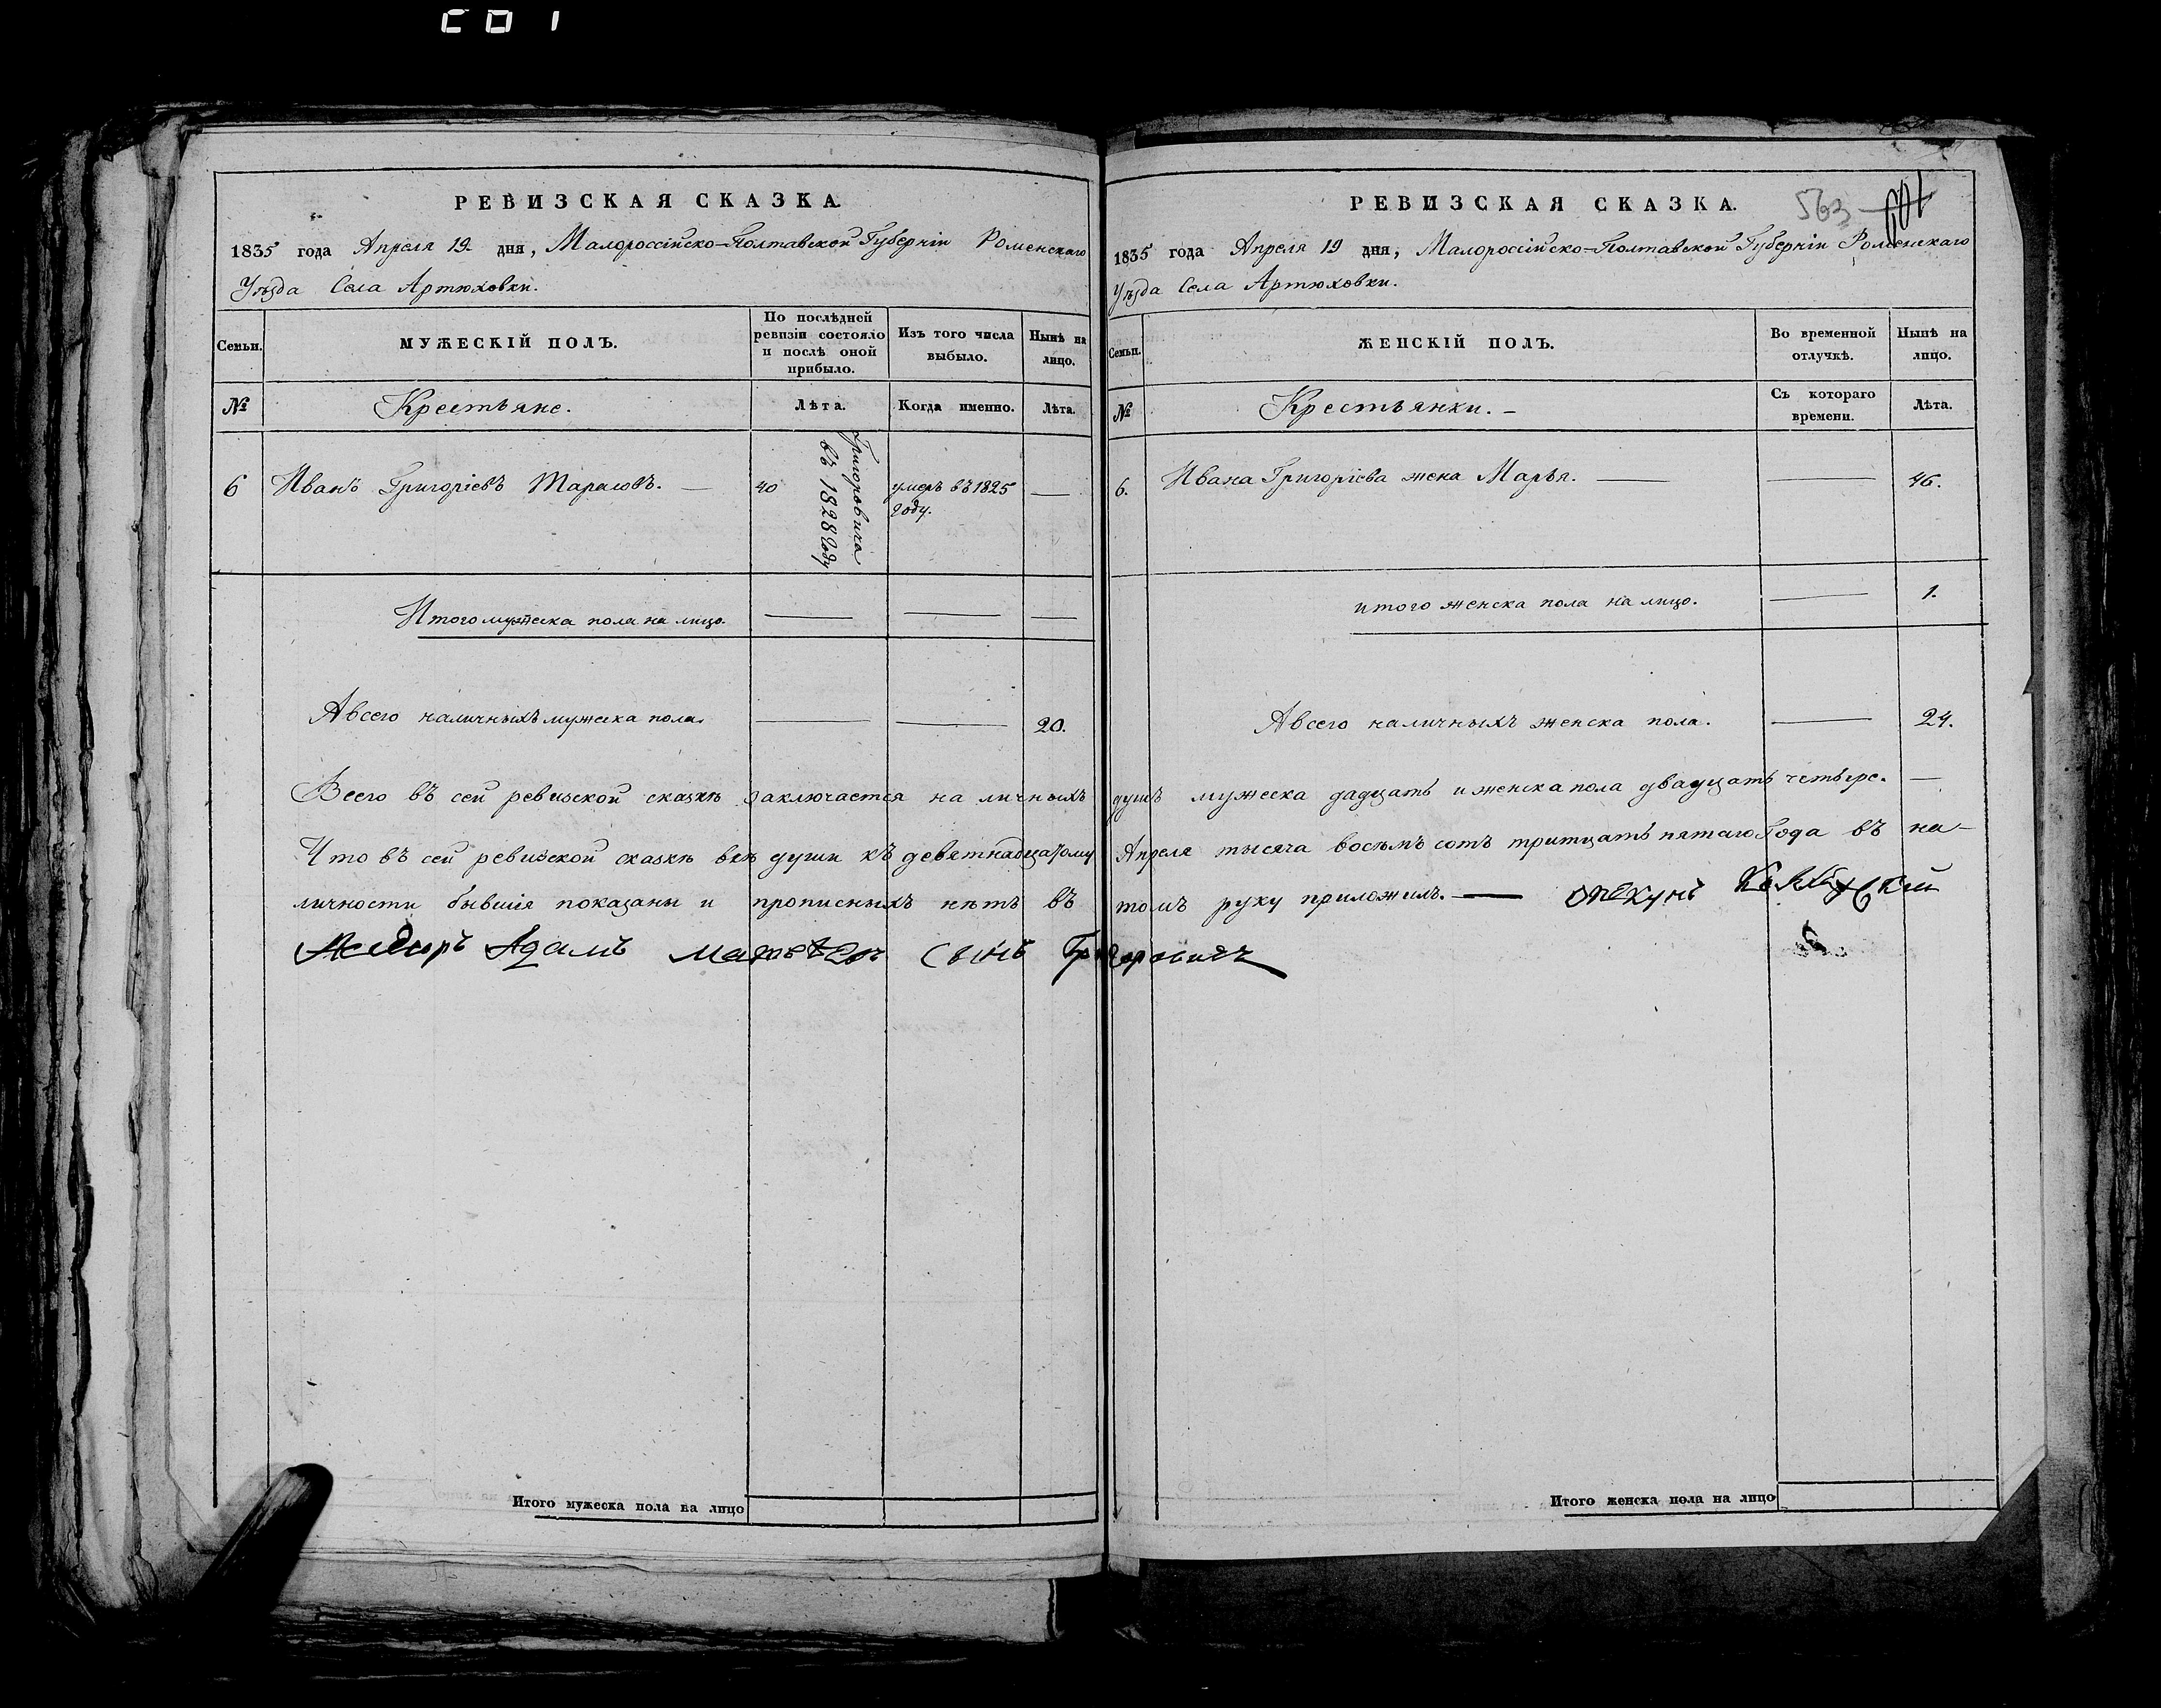 РЕВИЗСКАЯ СКАЗКА.
1835 года Апреля 19 дня, Малороссійско-Полтавской Губерніи Роменскаго
Уѣзда Села Артюховки.
Семьи.
МУЖЕСКІЙ ПОЛЪ.
По послѣдней
ревизіи состояло
и послѣ оной
прибыло.
Изъ того числа
выбыло.
Нынѣ на
лицо.
№
Крестьяне.
Лѣта.
Когда именно.
Лѣта.
6 Иванъ Григоріевъ Тарасовъ. — 40
Григоровича
въ 1828 году
умеръ въ 1825
году.
—
Итого мужеска пола на лицо.
А всего наличныхъ мужеска пола. 20.
Итого мужеска пола на лицо
РЕВИЗСКАЯ СКАЗКА.
563
1835 года Апреля 19 дня, Малороссійско-Полтавской Губерніи Роменскаго
Уѣзда Села Артюховки.
Семьи.
ЖЕНСКІЙ ПОЛЪ.
Во временной
отлучкѣ.
Нынѣ на
лицо.
№
Крестьянки. —
Съ котораго
времени.
Лѣта.
6. Ивана Григоріева жена Марья. — 46.
итого женска пола на лицо. 1.
А всего наличныхъ женска пола. 24.
Всего въ сей ревизской сказкѣ заключается на личныхъ душъ мужеска дадцать и женска пола двадцать четыре. —
Что въ сей ревизской сказкѣ всѣ души къ девятнадцатому Апреля тысяча восемъ сотъ тритцать пятаго Года въ на-
личности бывшія показаны и прописныхъ нѣтъ въ томъ руку приложилъ. — опекунъ
Адамъ сынъ Григоровичъ
Итого женска пола на лицо